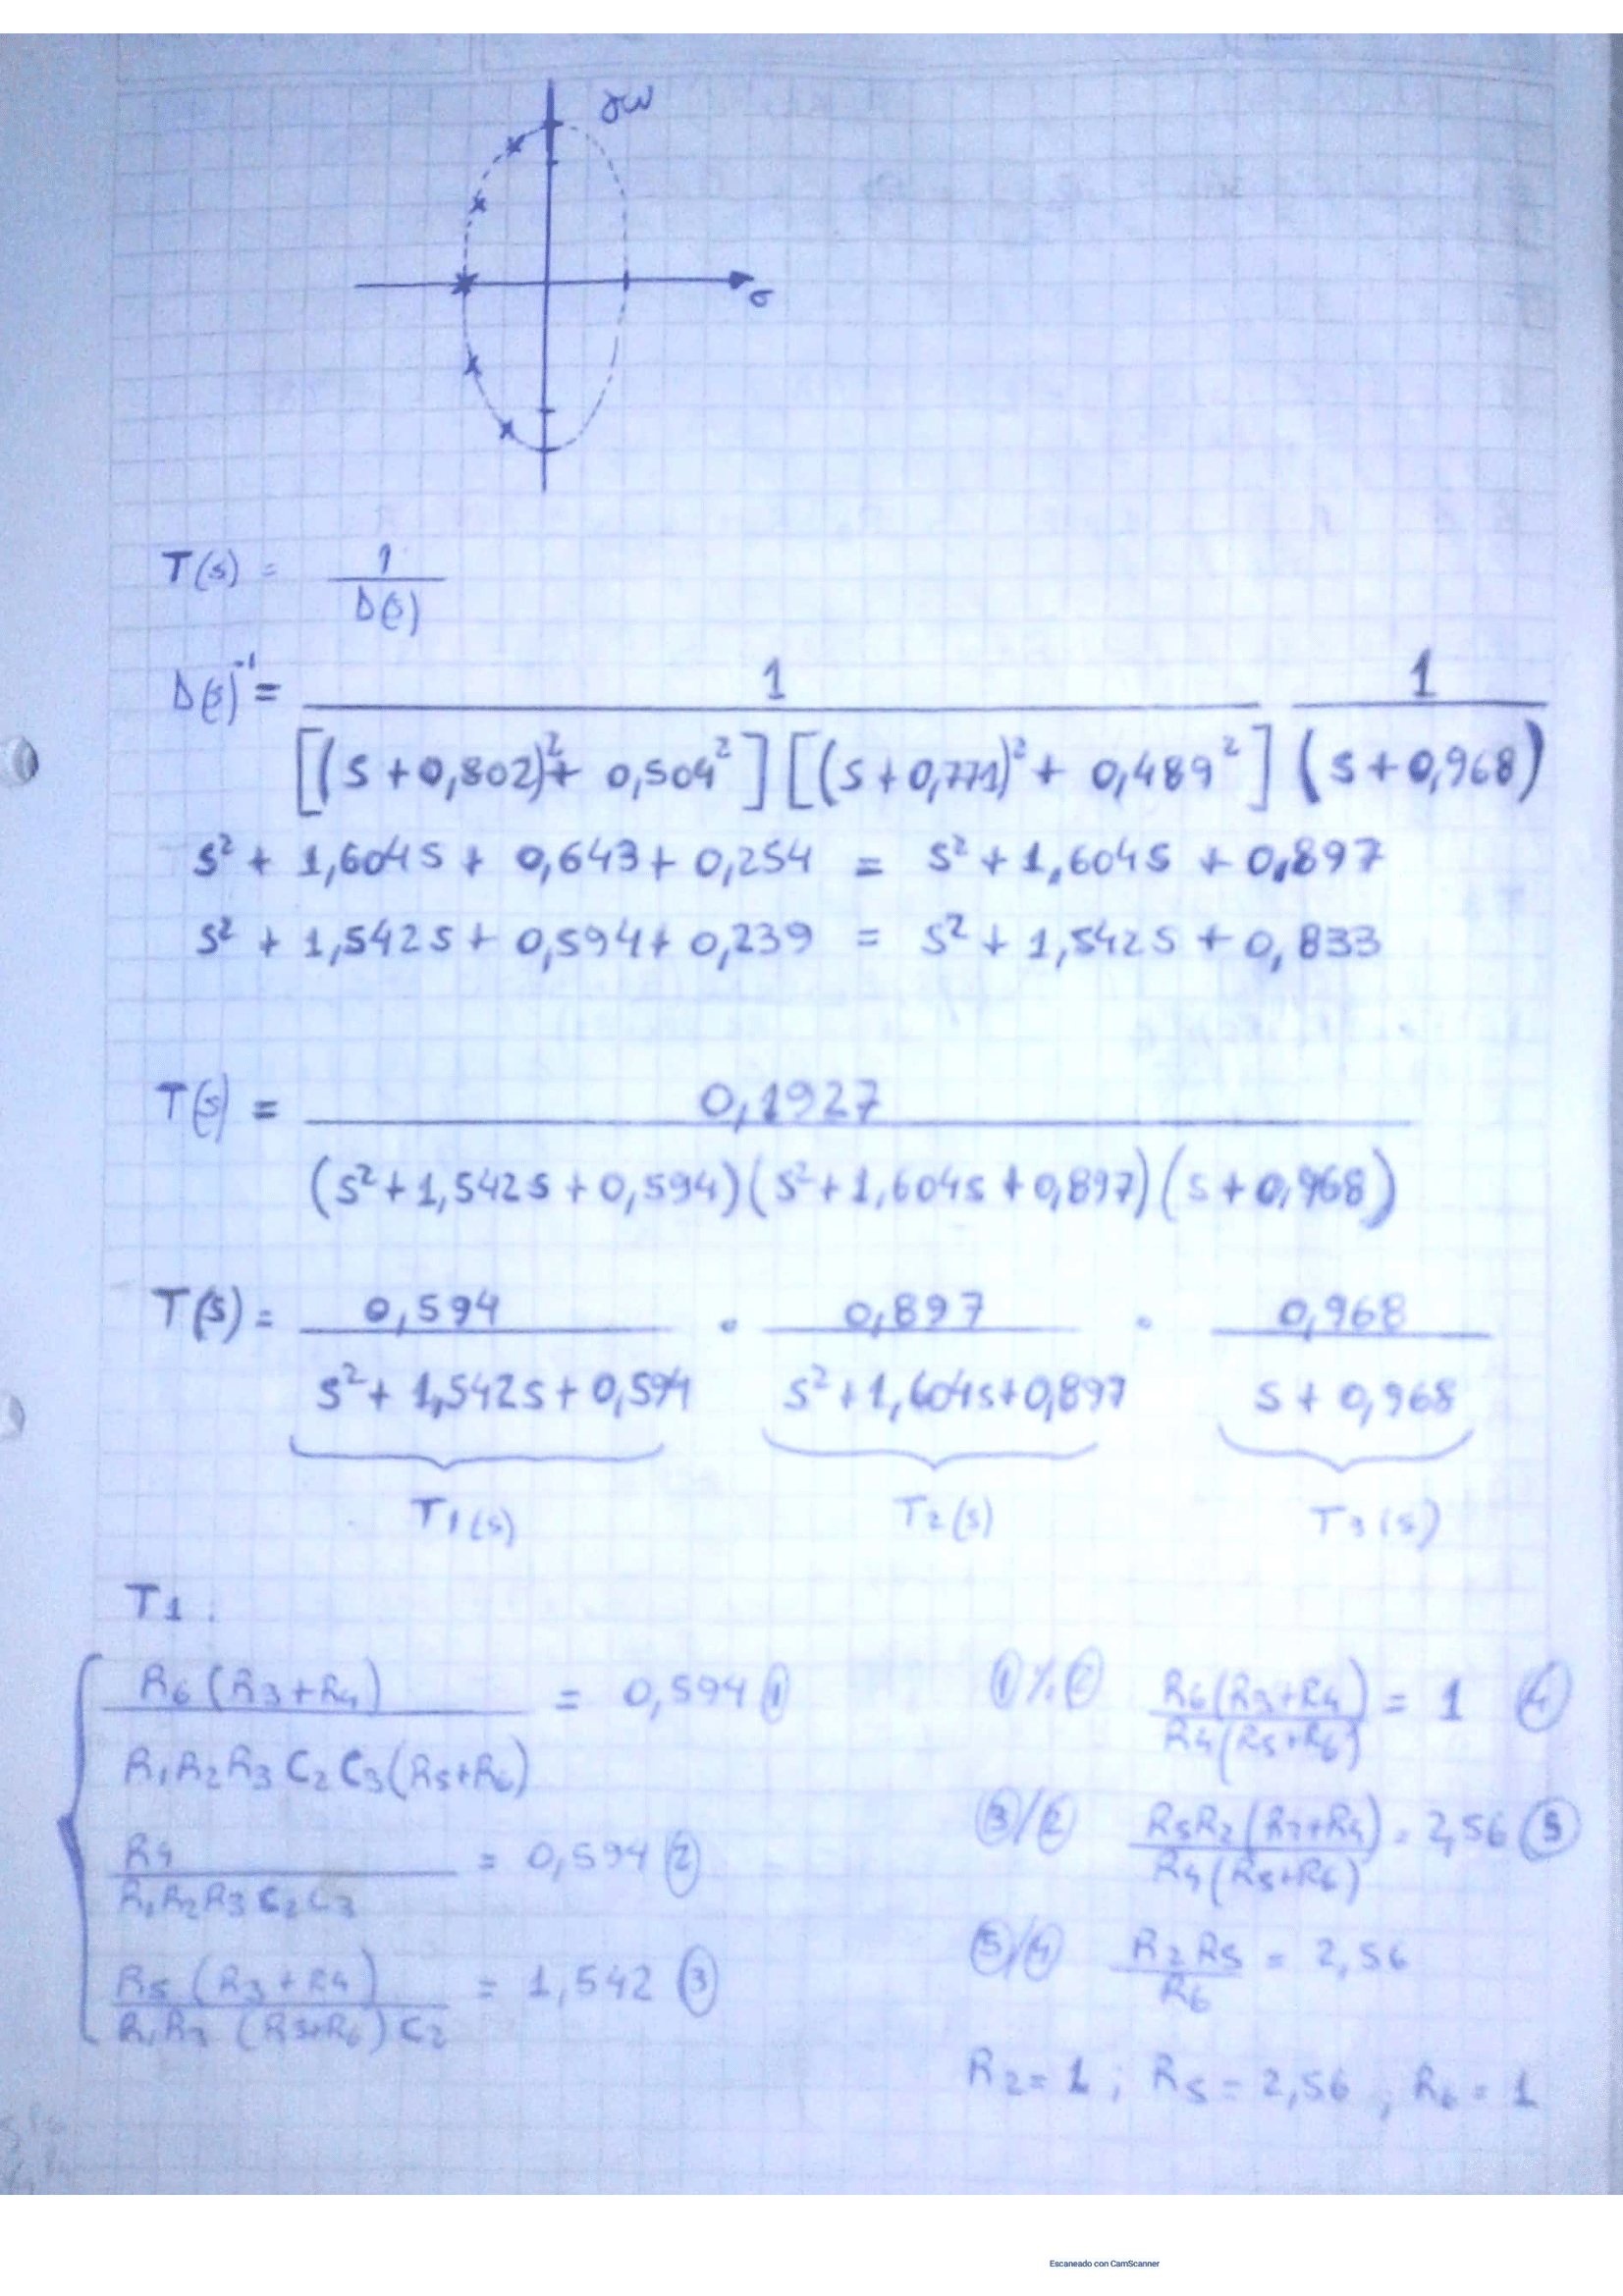 jω
σ
T(s) = 1 / D(s)
D(s)⁻¹ = 1 / [(s+0,802)²+ 0,504²] [(s+0,771)²+ 0,489²] 1 / (s+0,968)
s² + 1,604s + 0,643 + 0,254 = s² + 1,604s + 0,897
s² + 1,542s + 0,594 + 0,239 = s² + 1,542s + 0,833
T(s) = 0,1927 / (s²+1,542s+0,594)(s²+1,604s+0,897)(s+0,968)
T(s) = 0,594 / s²+1,542s+0,594 · 0,897 / s²+1,604s+0,897 · 0,968 / s+0,968
T1(s) T2(s) T3(s)
T1:
R6(R3+R4) / R1R2R3C2C3(R5+R6) = 0,594 ①
R4 / R1R2R3C2C3 = 0,594 ②
R5(R3+R4) / R1R3(R5+R6)C2 = 1,542 ③
①/② R6(R3+R4) / R4(R5+R6) = 1 ④
③/② R5R2(R3+R4) / R4(R5+R6) = 2,56 ⑤
⑤/④ R2R5 / R6 = 2,56
R2=1; R5=2,56, R6=1
Escaneado con CamScanner